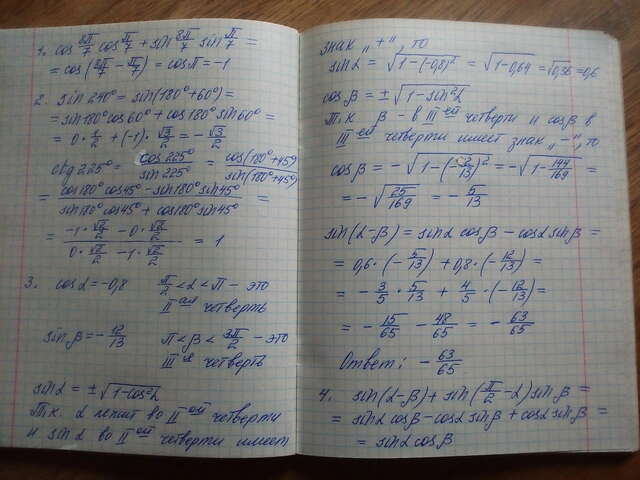 1. cos 8π/7 cos π/7 + sin 8π/7 sin π/7 =
= cos (8π/7 − π/7) = cos π = −1
2. sin 240° = sin(180°+60°) =
= sin 180° cos 60° + cos 180° sin 60° =
= 0 · 1/2 + (−1) · √3/2 = − √3/2
ctg 225° = cos 225° / sin 225° = cos(180°+45°) / sin(180°+45°)
= cos180° cos45° − sin180° sin45° / sin180° cos45° + cos180° sin45° =
= −1 · √2/2 − 0 · √2/2 / 0 · √2/2 − 1 · √2/2 = 1
3. cos α = −0,8 π/2 < α < π − это
II ая четверть
sin β = − 12/13 π < β < 3π/2 − это
III я четверть
sin α = ± √1−cos²α
Т.к. α лежит во II ой четверти
и sin α во II ой четверти имеет
знак „+“, то
sin α = √1−(−0,8)² = √1−0,64 = √0,36 = 0,6
cos β = ± √1−sin²α
Т.к. β − в III ей четверти и cos β в
III ей четверти имеет знак „−“, то
cos β = − √1−(−12/13)² = − √1− 144/169 =
= − √25/169 = − 5/13
sin(α−β) = sin α cos β − cos α sin β =
= 0,6 · (− 5/13) + 0,8 · (− 12/13) =
= − 3/5 · 5/13 + 4/5 · (− 12/13) =
= − 15/65 − 48/65 = − 63/65
Ответ: − 63/65
4. sin(α−β) + sin(π/2 − α) sin β =
= sin α cos β − cos α sin β + cos α sin β =
= sin α cos β